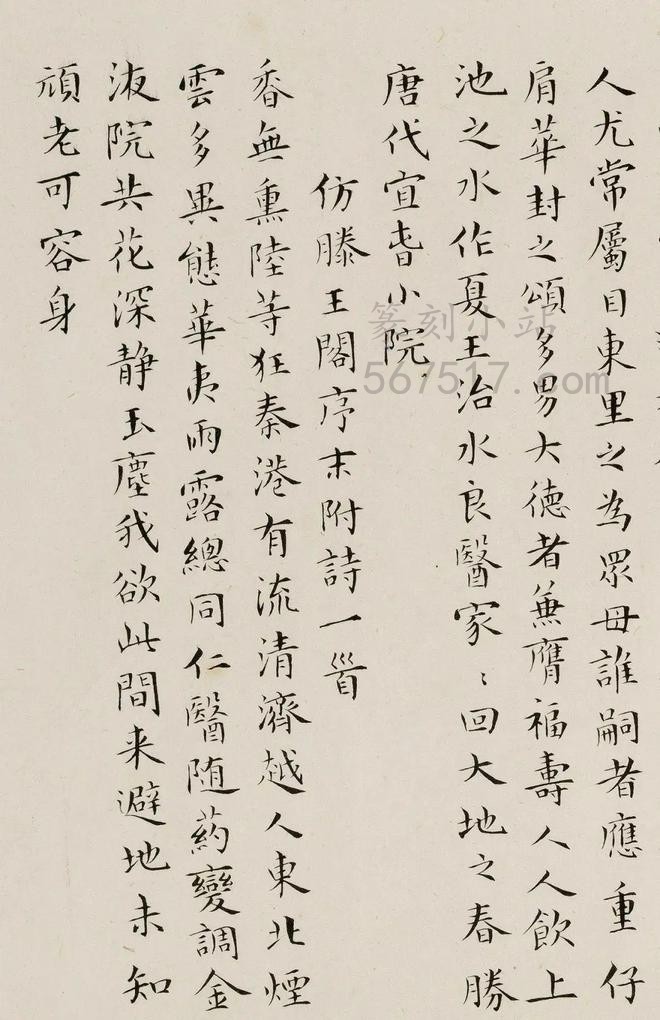 人尤常屬目東里之為眾母誰嗣者應重仔
肩華封之頌多男大德者兼膺福壽人人飲上
池之水作夏王治水良醫家〻回大地之春勝
唐代宜春小院
仿滕王閣序末附詩一首
香無熏陸等狂秦港有流清濟越人東北煙
雲多異態華夷雨露總同仁醫随药變調金
液院共花深静玉塵我欲此間来避地未知
頑老可容身
篆刻小站
567517.com